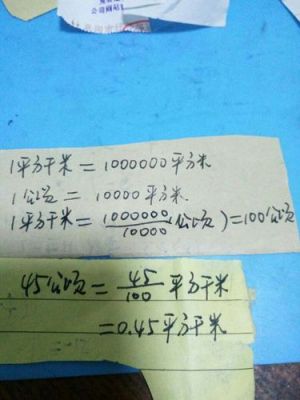 公司网站
1平方千米 = 1000000平方米
1公顷 = 10000平方米
1平方千米 = 1000000/10000(公顷) = 100公顷
45公顷 = 45/100 平方千米
= 0.45平方千米